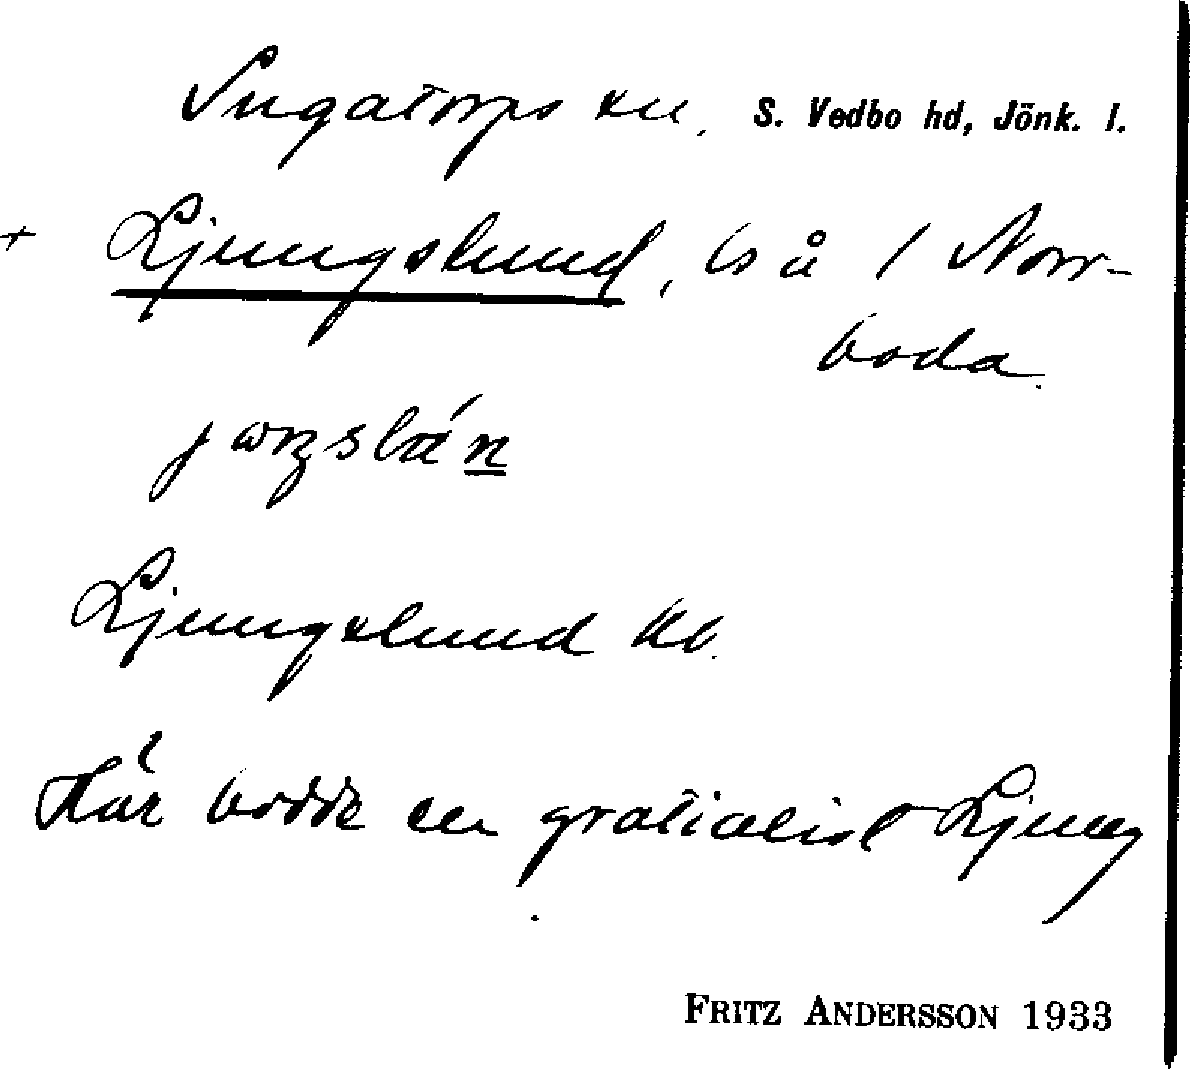 Ingatorps sn. S. Vedbo hd, Jönk. l.
+ Ljungslund, ls å 1 Norr-
boda.
Ljungslund kb.
Här bodde en gratialist Ljung
FRITZ ANDERSSON 1933